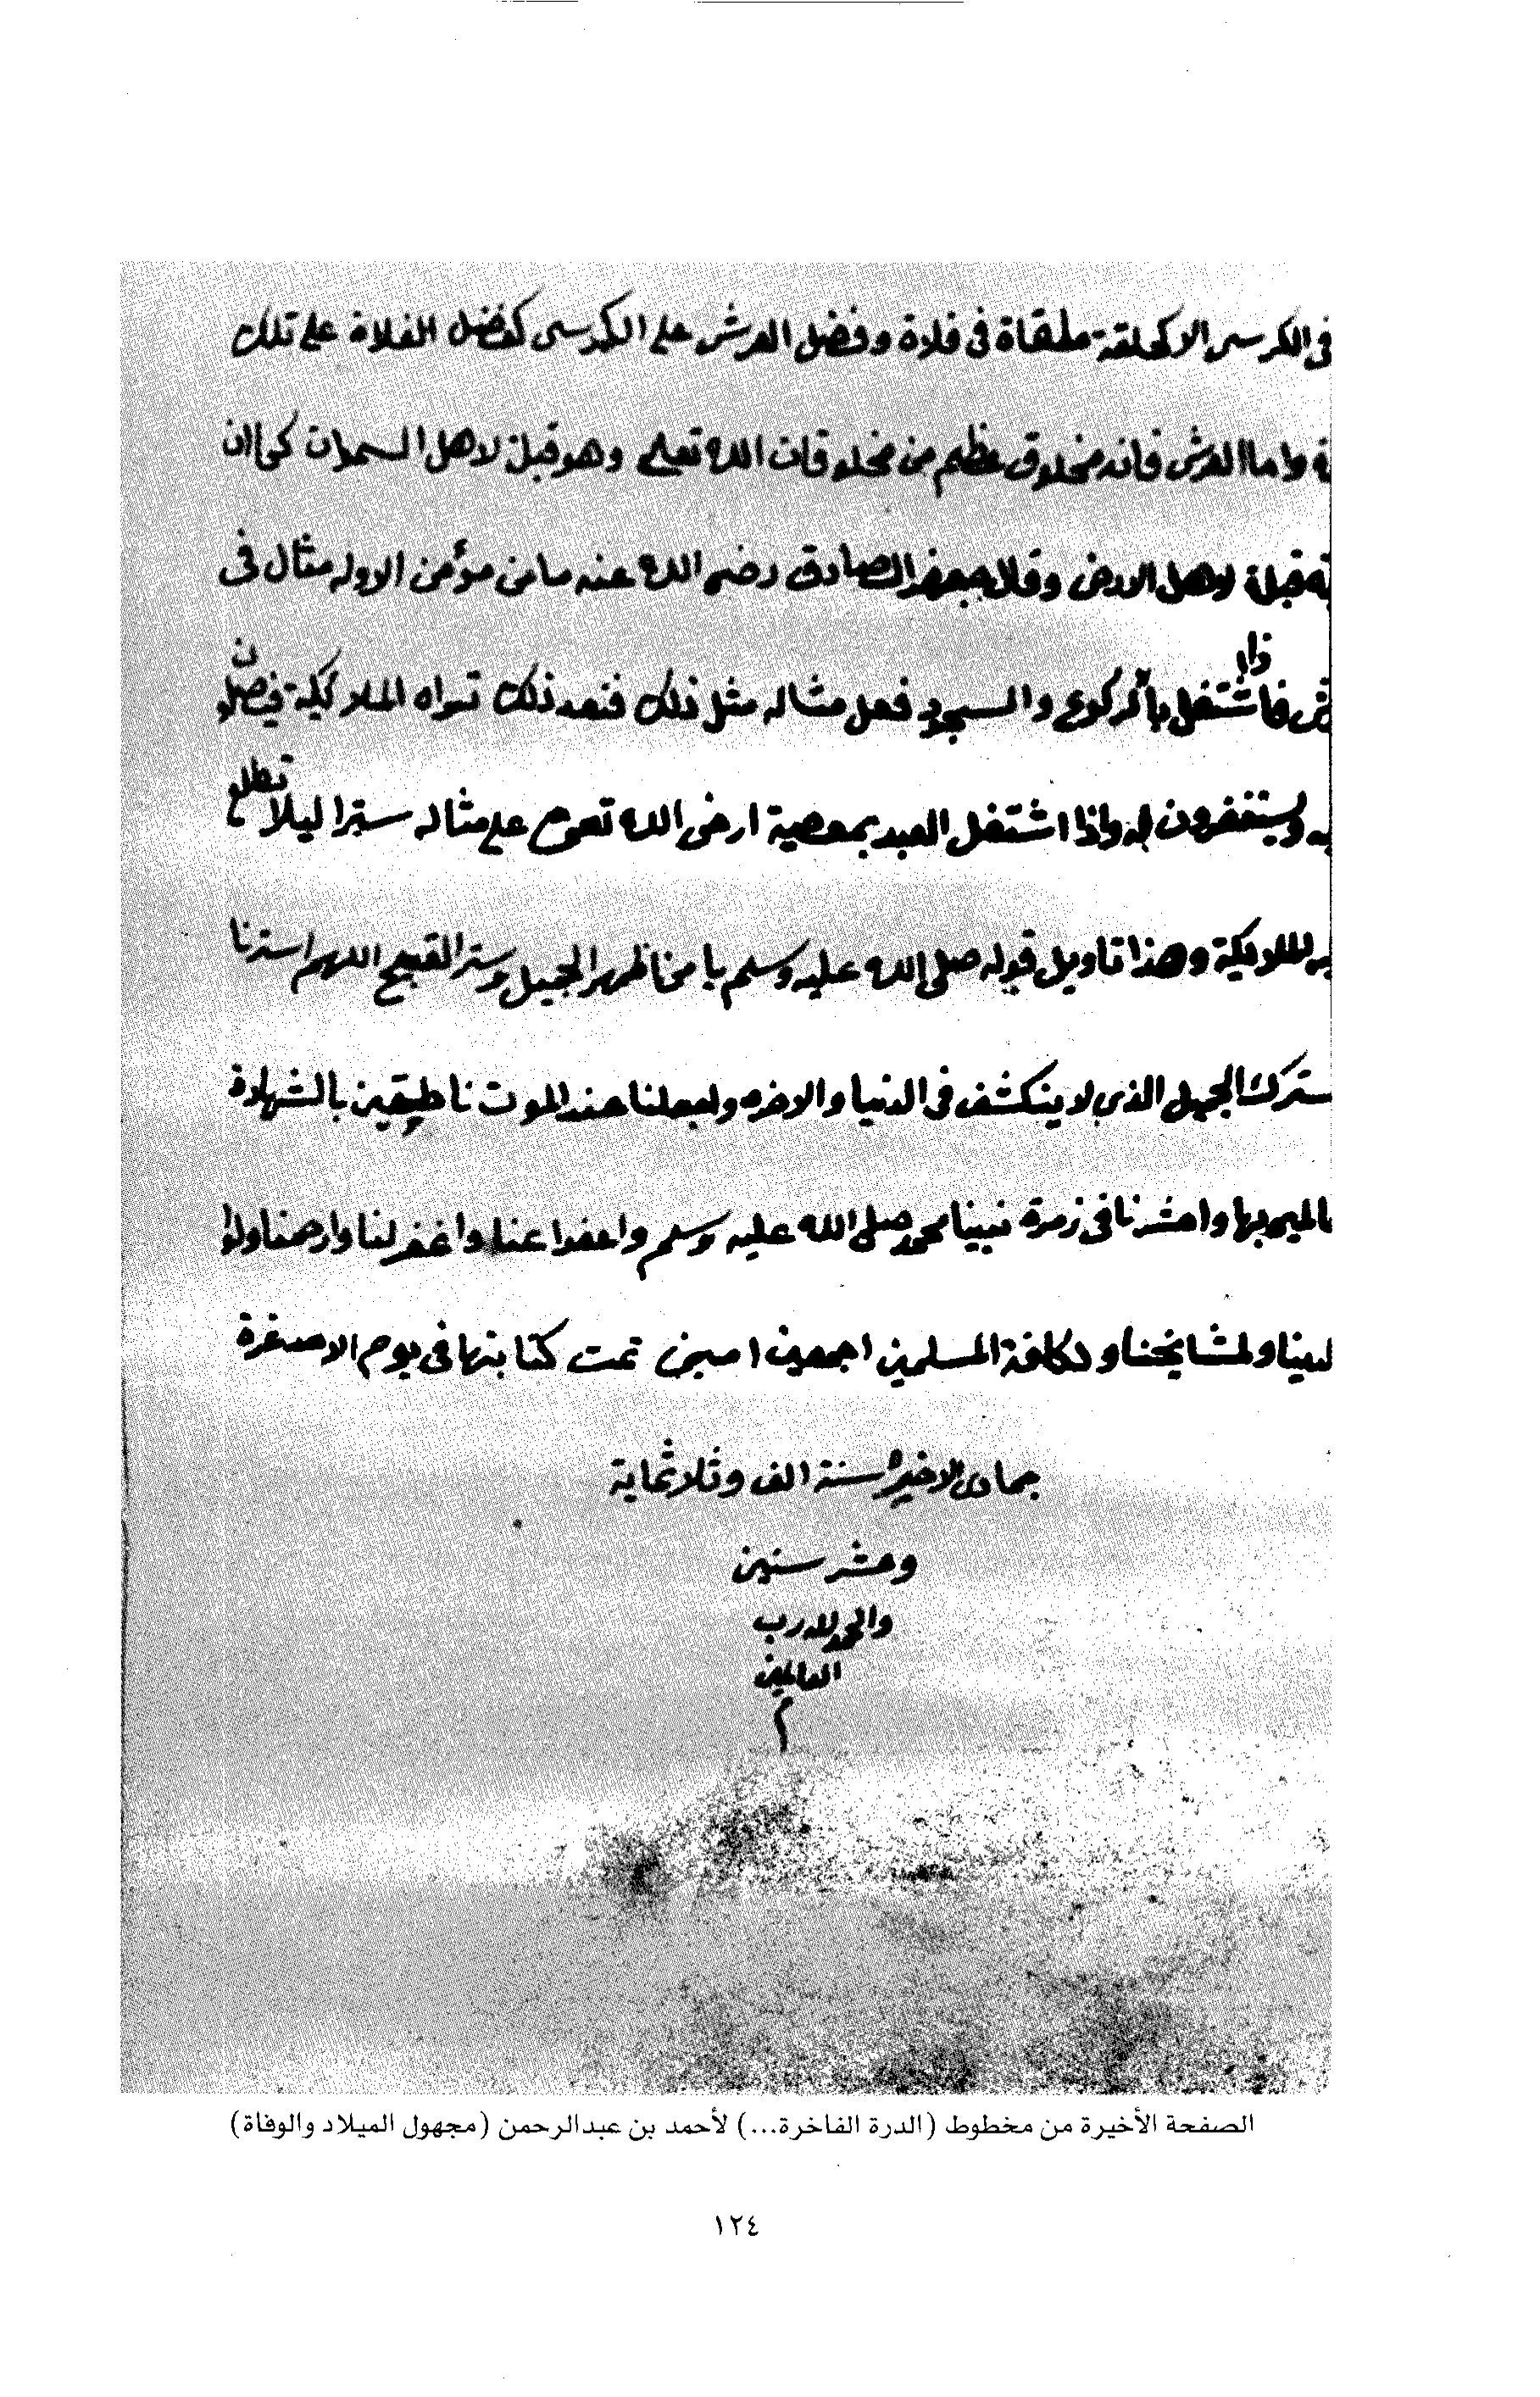 في الكرسي الا كحلقة ملقاة في فلاة وفضل العرش على الكرسي كفضل الفلاة على تلك
ة واما العرش فانه مخلوق عظيم من مخلوقات الله تعلى وهو قبلة لاهل السموات كما ان
به قبلة لاهل الارض وقال جعفر الصادق رضي الله عنه ما من مؤمن الا وله مثال في
ش فاذا اشتغل بالركوع والسجود فعل مثاله مثل ذلك فنعد ذلك تراه الملايكة فيصلون
يه ويستغفرون له واذا اشتغل العبد بمعصية ارخى الله تعو على مثاله سترا ليلا تطلع
يه الملايكة وهذا تاويل قوله صلى الله عليه وسلم يا من اظهر الجميل وستر القبيح اللهم استرنا
سترك الجميل الذي لا ينكشف في الدنيا والاخره واجعلنا عند الموت ناطقين بالشهادة
عالمين بها واحشرنا في زمرة نبينا محمد صلى الله عليه وسلم واعفوا عنا واغفر لنا وارحمنا ولوا
لدينا ولمشايخنا ولكافة المسلمين اجمعين امين تمت كتابتها في يوم الاحد غرة
جمادى الاخيرة سنة الف وثلاثماية
وعشر سنين
والحمد لله رب
العالمين
م
الصفحة الأخيرة من مخطوط (الدرة الفاخرة...) لأحمد بن عبدالرحمن (مجهول الميلاد والوفاة)
١٢٤